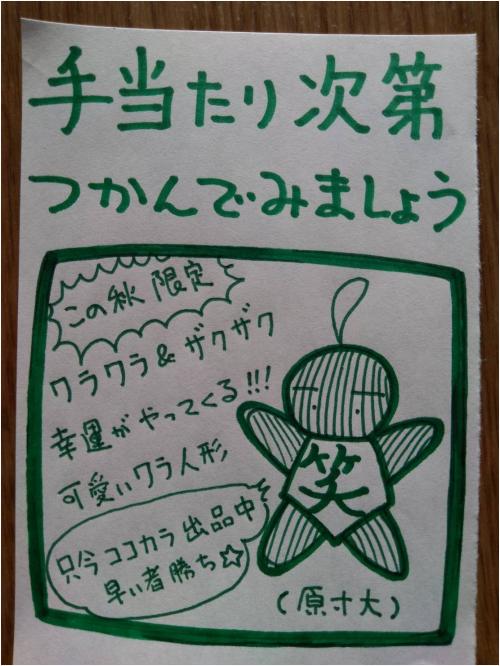 手当たり次第
つかんでみましょう
この秋限定
ワラワラ&ザクザク
幸運がやってくる!!!
可愛いワラ人形
只今ココカラ出品中
早い者勝ち☆
笑
(原寸大)